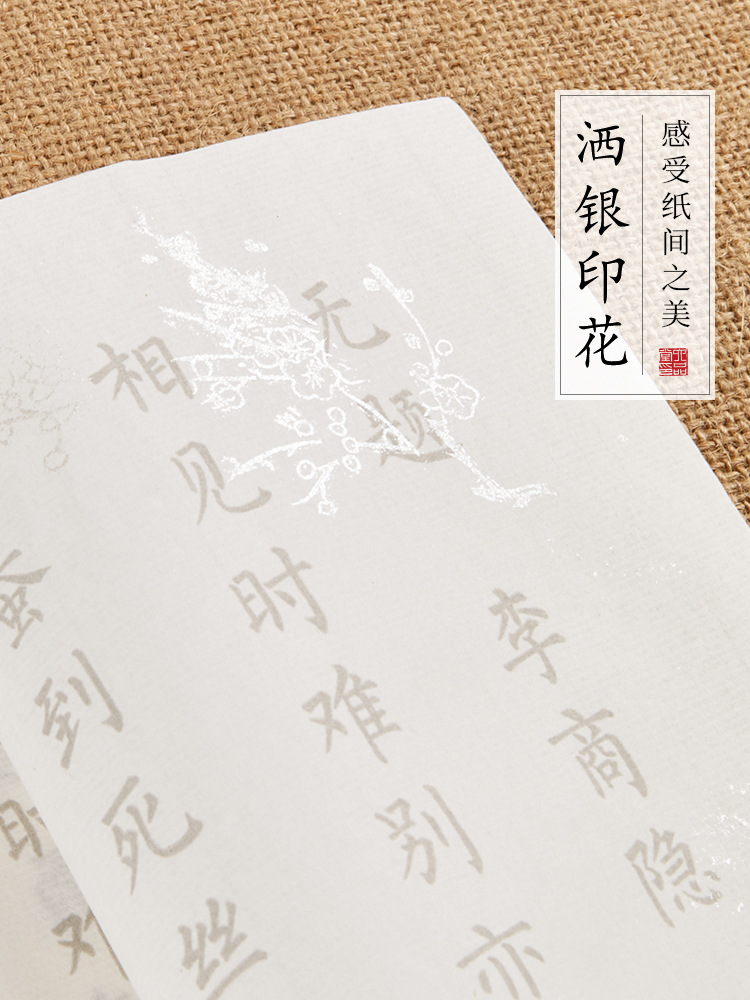 感受纸间之美
洒银印花
无题
李商隐
相见时难别亦
蚕到死丝
时难